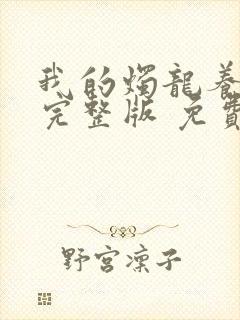 我的烛龍养
完整版 免費
野宮凜子